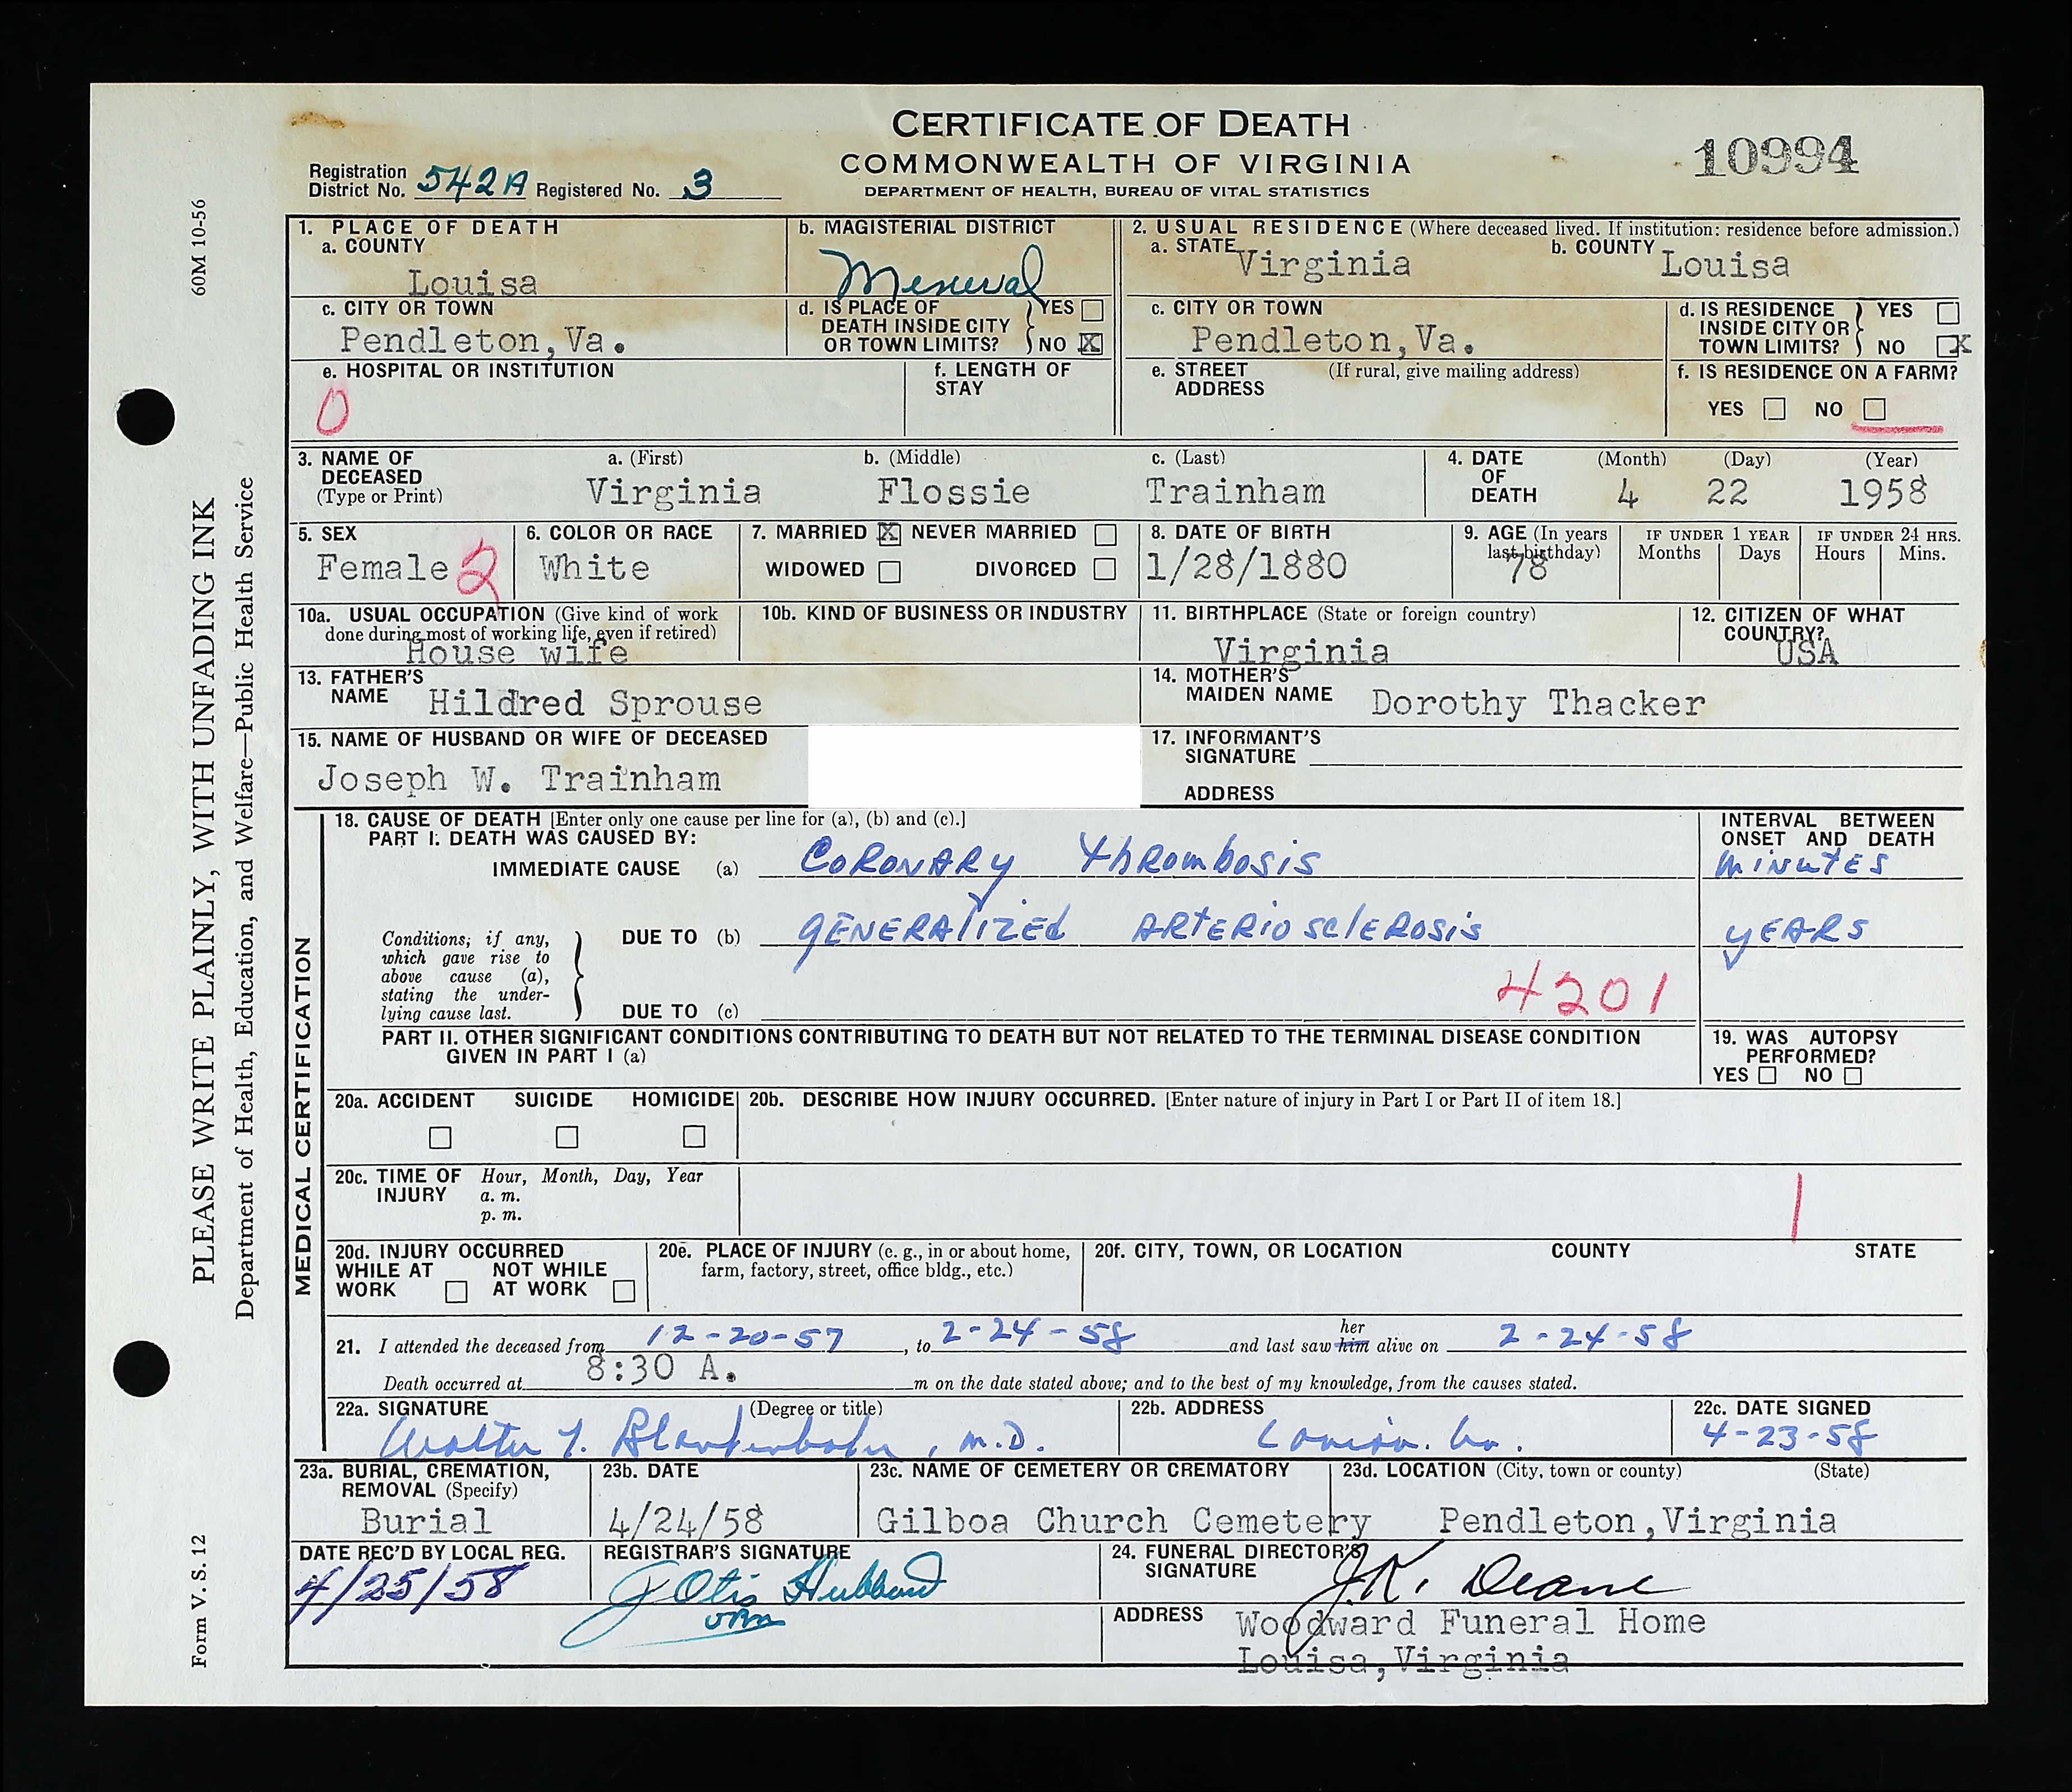 CERTIFICATE OF DEATH
COMMONWEALTH OF VIRGINIA
DEPARTMENT OF HEALTH, BUREAU OF VITAL STATISTICS
10994
Registration
District No. 542A Registered No. 3
60M 10-56
PLEASE WRITE PLAINLY, WITH UNFADING INK
Department of Health, Education, and Welfare—Public Health Service
Form V. S. 12
1. PLACE OF DEATH
a. COUNTY
Louisa
b. MAGISTERIAL DISTRICT
2. USUAL RESIDENCE (Where deceased lived. If institution: residence before admission.)
a. STATE Virginia
b. COUNTY Louisa
c. CITY OR TOWN
Pendleton,Va.
d. IS PLACE OF
DEATH INSIDE CITY
OR TOWN LIMITS?
YES
NO X
c. CITY OR TOWN
Pendleton,Va.
d. IS RESIDENCE
INSIDE CITY OR
TOWN LIMITS?
YES
NO X
e. HOSPITAL OR INSTITUTION
0
f. LENGTH OF
STAY
e. STREET
ADDRESS
(If rural, give mailing address)
f. IS RESIDENCE ON A FARM?
YES NO
3. NAME OF
DECEASED
(Type or Print)
a. (First)
Virginia
b. (Middle)
Flossie
c. (Last)
Trainham
4. DATE
OF
DEATH
(Month) (Day) (Year)
4 22 1958
5. SEX
Female 2
6. COLOR OR RACE
White
7. MARRIED X NEVER MARRIED
WIDOWED DIVORCED
8. DATE OF BIRTH
1/28/1880
9. AGE (In years
last birthday)
78
IF UNDER 1 YEAR
Months Days
IF UNDER 24 HRS.
Hours Mins.
10a. USUAL OCCUPATION (Give kind of work
done during most of working life, even if retired)
House wife
10b. KIND OF BUSINESS OR INDUSTRY
11. BIRTHPLACE (State or foreign country)
Virginia
12. CITIZEN OF WHAT
COUNTRY?
USA
13. FATHER'S
NAME Hildred Sprouse
14. MOTHER'S
MAIDEN NAME Dorothy Thacker
15. NAME OF HUSBAND OR WIFE OF DECEASED
Joseph W. Trainham
17. INFORMANT'S
SIGNATURE
ADDRESS
MEDICAL CERTIFICATION
18. CAUSE OF DEATH [Enter only one cause per line for (a), (b) and (c).]
PART I. DEATH WAS CAUSED BY:
IMMEDIATE CAUSE (a) CORONARY thrombosis
INTERVAL BETWEEN
ONSET AND DEATH
minutes
Conditions, if any,
which gave rise to
above cause (a),
stating the under-
lying cause last.
DUE TO (b) GENERALIZED ARTERIOSCLEROSIS
YEARS
4201
DUE TO (c)
PART II. OTHER SIGNIFICANT CONDITIONS CONTRIBUTING TO DEATH BUT NOT RELATED TO THE TERMINAL DISEASE CONDITION
GIVEN IN PART I (a)
19. WAS AUTOPSY
PERFORMED?
YES NO
20a. ACCIDENT SUICIDE HOMICIDE
20b. DESCRIBE HOW INJURY OCCURRED. [Enter nature of injury in Part I or Part II of item 18.]
20c. TIME OF
INJURY
Hour, Month, Day, Year
a. m.
p. m.
1
20d. INJURY OCCURRED
WHILE AT NOT WHILE
WORK AT WORK
20e. PLACE OF INJURY (e. g., in or about home,
farm, factory, street, office bldg., etc.)
20f. CITY, TOWN, OR LOCATION COUNTY STATE
21. I attended the deceased from 12-20-57, to 2-24-58 and last saw him her alive on 2-24-58
Death occurred at 8:30 A. m on the date stated above; and to the best of my knowledge, from the causes stated.
22a. SIGNATURE (Degree or title)
Walter , M.D.
22b. ADDRESS
Louisa. Va.
22c. DATE SIGNED
4-23-58
23a. BURIAL, CREMATION,
REMOVAL (Specify)
Burial
23b. DATE
4/24/58
23c. NAME OF CEMETERY OR CREMATORY
Gilboa Church Cemetery
23d. LOCATION (City, town or county) (State)
Pendleton,Virginia
DATE REC'D BY LOCAL REG.
4/25/58
REGISTRAR'S SIGNATURE
J Otis Hubbard
24. FUNERAL DIRECTOR'S
SIGNATURE J.K. Deane
ADDRESS Woodward Funeral Home
Louisa,Virginia